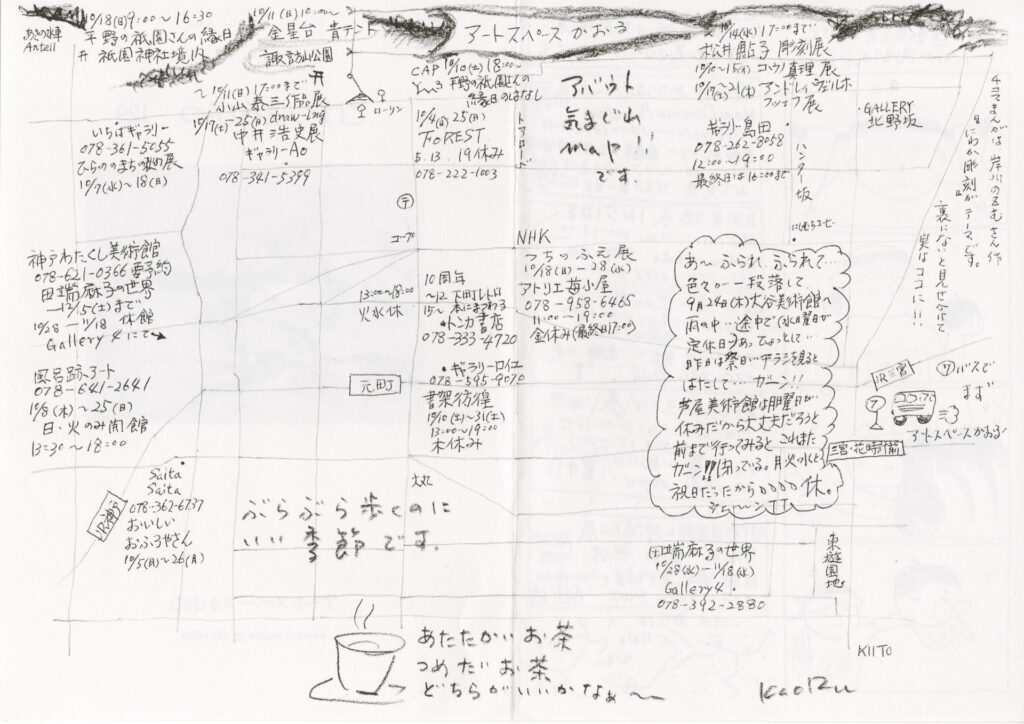 10/18(日)9:00〜16:30
平野の祇園さんの縁日
井 祇園神社境内
Antell
10/11(日)10:00〜
金星台 青テント
諏訪山公園
アートスペースかおる
〜10/11(日)17:00まで
小山泰三作品展
10/17(土)〜25(日)draw-ing
中井浩史展
ギャラリーAO
078-341-5399
ローソン
いちばギャラリー
078-361-5055
ひらののまちの秘め展
10/7(水)〜18(日)
CAP 10/10(土)18:00〜
平野の祇園さんの
縁日のはなし
10/4(日)25(日)
FOREST
5.13.19休み
078-222-1003
トアロード
アバウト
気まぐれ
map!!
です。
10/14(水)17:00まで
松井鮎子 彫刻展
10/10〜15(木)コウノ真理展
10/17〜21(水)アンドレイ・ヴェルホ
フツェフ展
ギャラリー島田
078-262-8058
12:00〜19:00
最終日は16:00まで
ハンター坂
にしむらコーヒー
GALLERY
北野坂
4コマまんがは 岸川のぞむさん作
『にわか彫刻がテーマ』です。
裏にないと見せかけて
実はココに!!!
〒
コープ
NHK
つちのふえ展
10/18(日)-28(水)
アトリエ苺小屋
078-958-6465
11:00〜19:00
金休み(最終日17:00)
神戸わたくし美術館
078-621-0366 要予約
田端麻子の世界
〜12/5(土)まで
10/28〜11/18 休館
Gallery 4 にて
13:00〜18:00
火水休
10周年
〜12 下町レトロ
15〜 本にまつわる
トンカ書店
078-333-4720
ギャラリーロイエ
078-595-9070
書架彷徨
10/10(土)〜31(土)
13:00〜19:00
木休み
元町
風呂跡アート
078-641-2641
10/8(木)〜25(日)
日・火のみ開館
13:30〜18:00
あ〜ふられ、ふられて…
色々が一段落して、
9月24日(木)大谷美術館へ
雨の中…途中で(水曜日が
定休日)あってひょっとして…
昨日が祭日…チラシを見ると
はたして…ガーン!!
芦屋美術館は月曜日が
休みだから大丈夫だろうと
前まで行ってみると これまた
ガーン!!閉っている。月火水と
祝日だったから休。
JR三宮
⑦バスで
まず
アートスペースかおる!
三宮・花時計前
JR神戸
Saita
Saita
078-362-6737
おいしい
おふろやさん
10/5(月)〜26(月)
大丸
ぶらぶら歩くのに
いい季節です。
田端麻子の世界
10/28(水)〜11/18(水)
Gallery4
078-392-2880
東遊園地
KIITO
あたたかいお茶
つめたいお茶
どちらがいいかなぁ〜〜
KaoRu